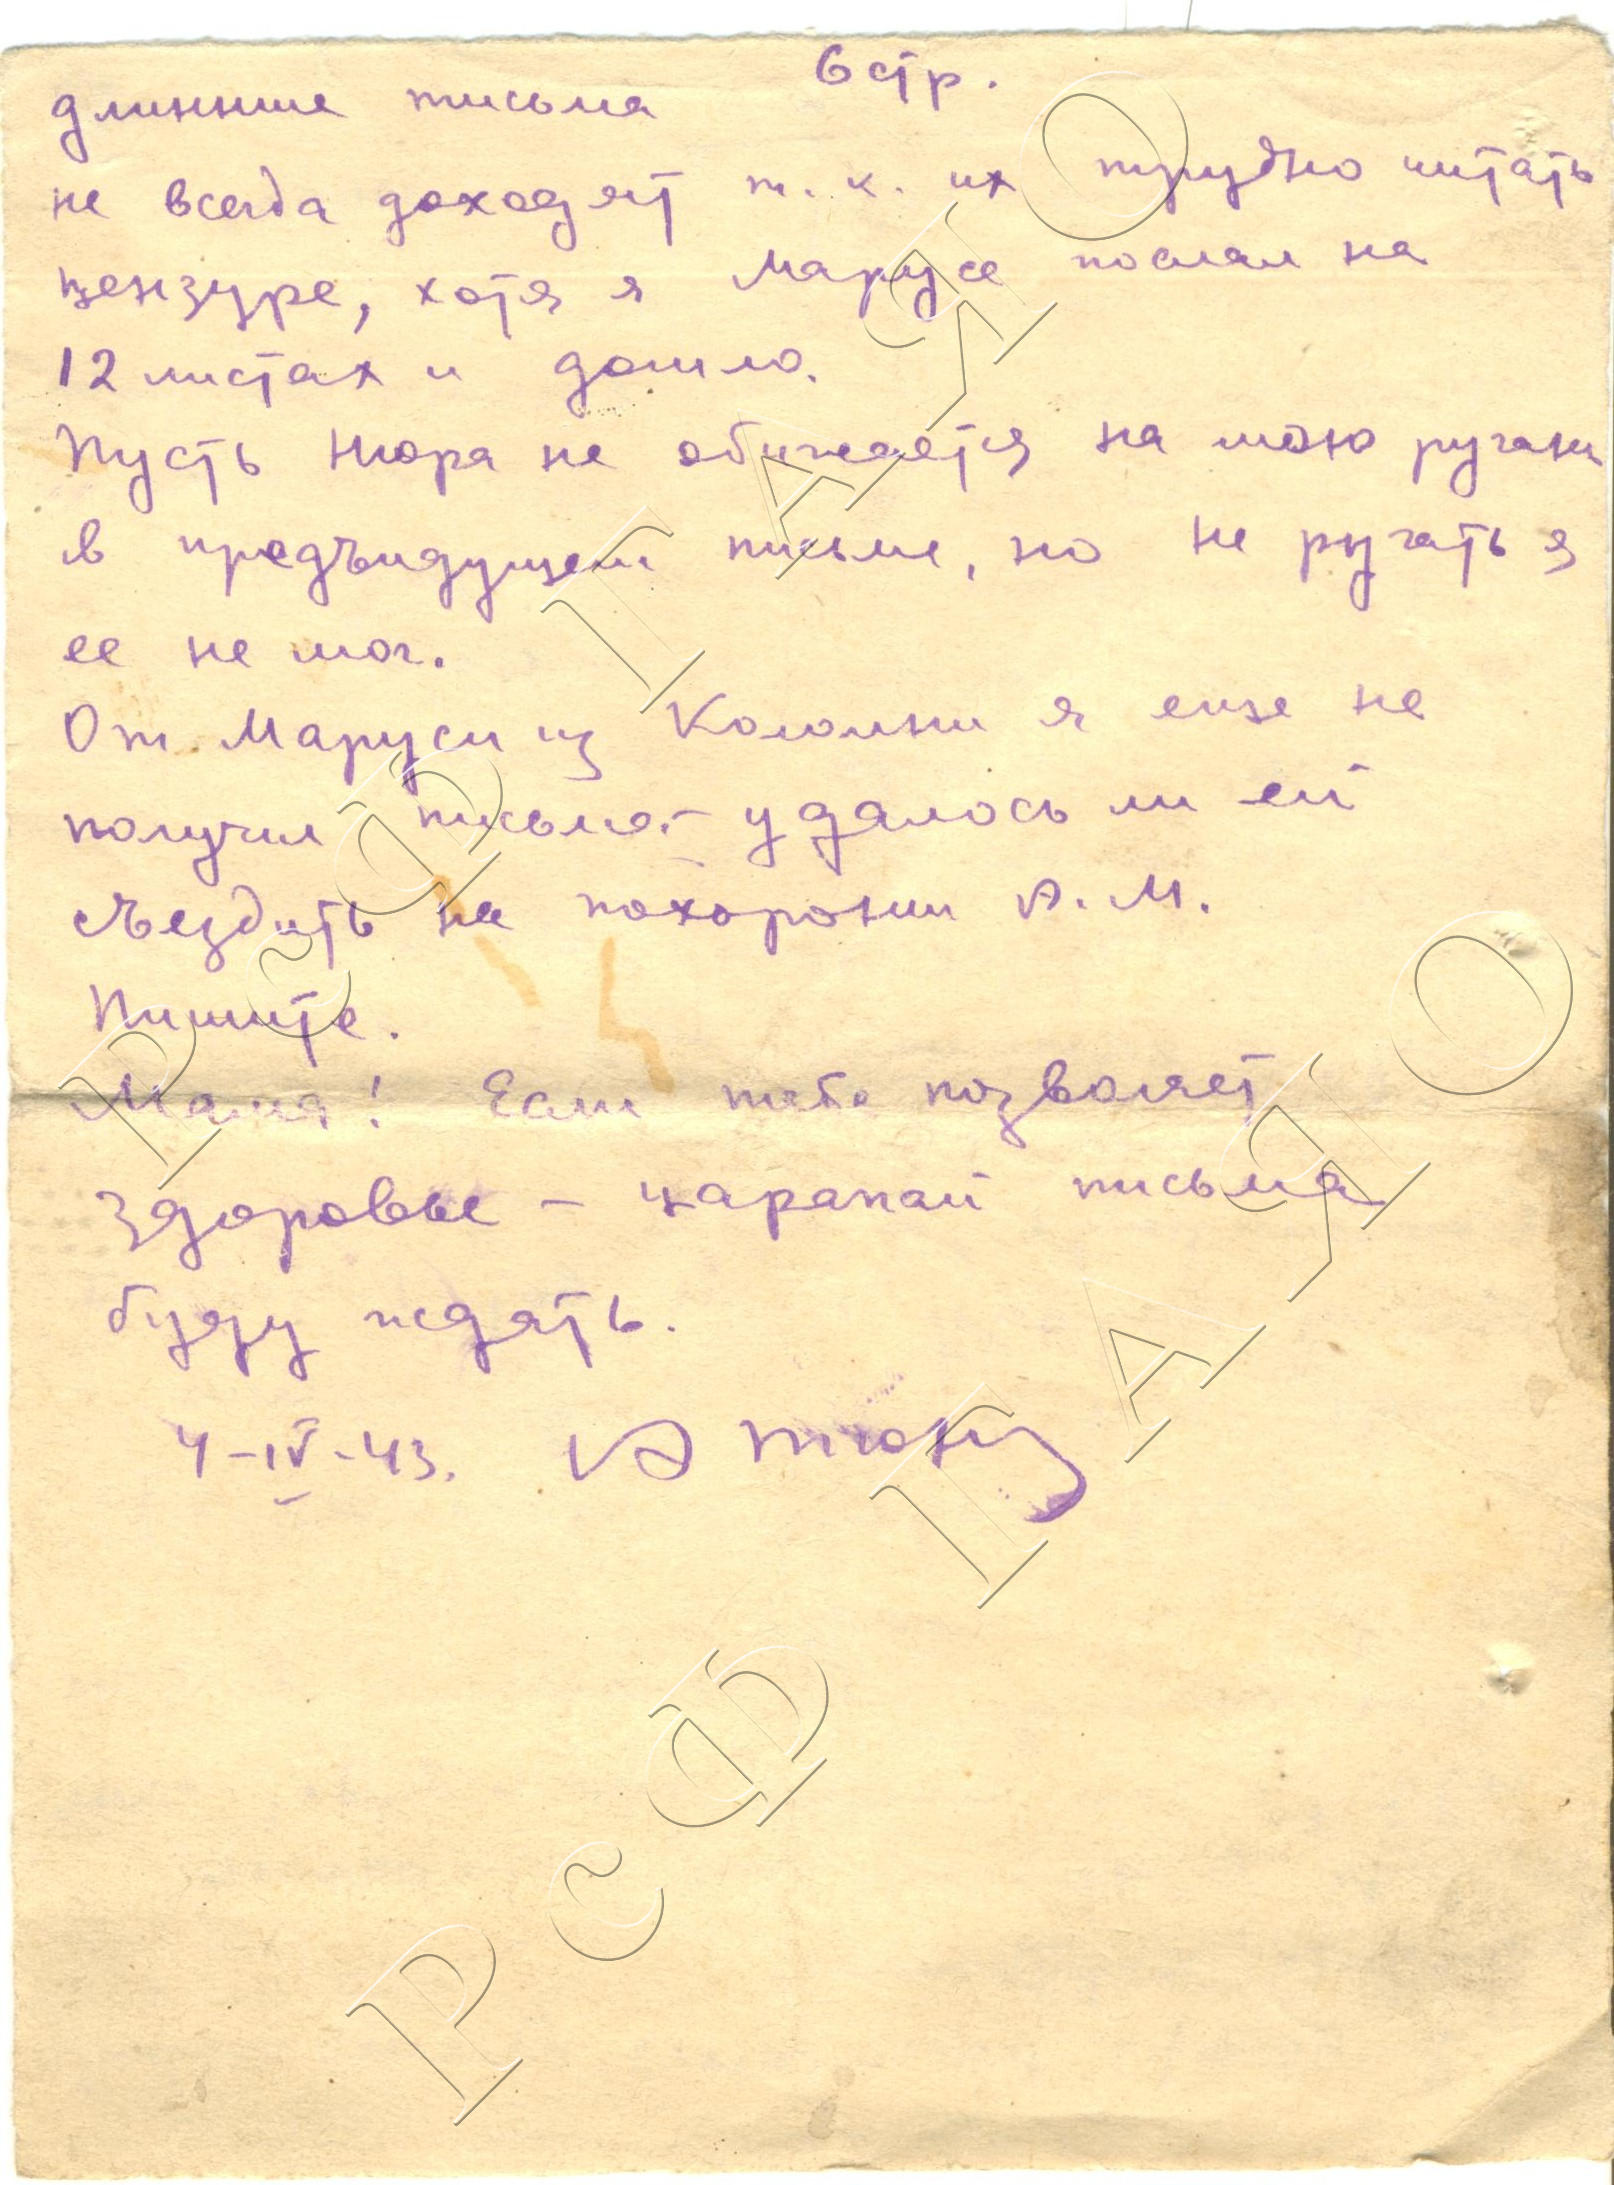 6 стр.
длинные письма
не всегда доходят т. к. их трудно читать
цензуре, хотя я Марусе послал на
12 листах и дошло.
Пусть Нюра не обижается на мою ругань
в предъидущем письме, но не ругать я
ее не мог.
От Маруси из Коломны я еще не
получил письма. – удалось ли ей
съездить на похороны А. М.
Пишите.
Мама! Если тебе позволяет
здоровье – царапай письма
буду ждать.
4–IV-43.
РсФ ГАЯО
РсФ ГАЯО